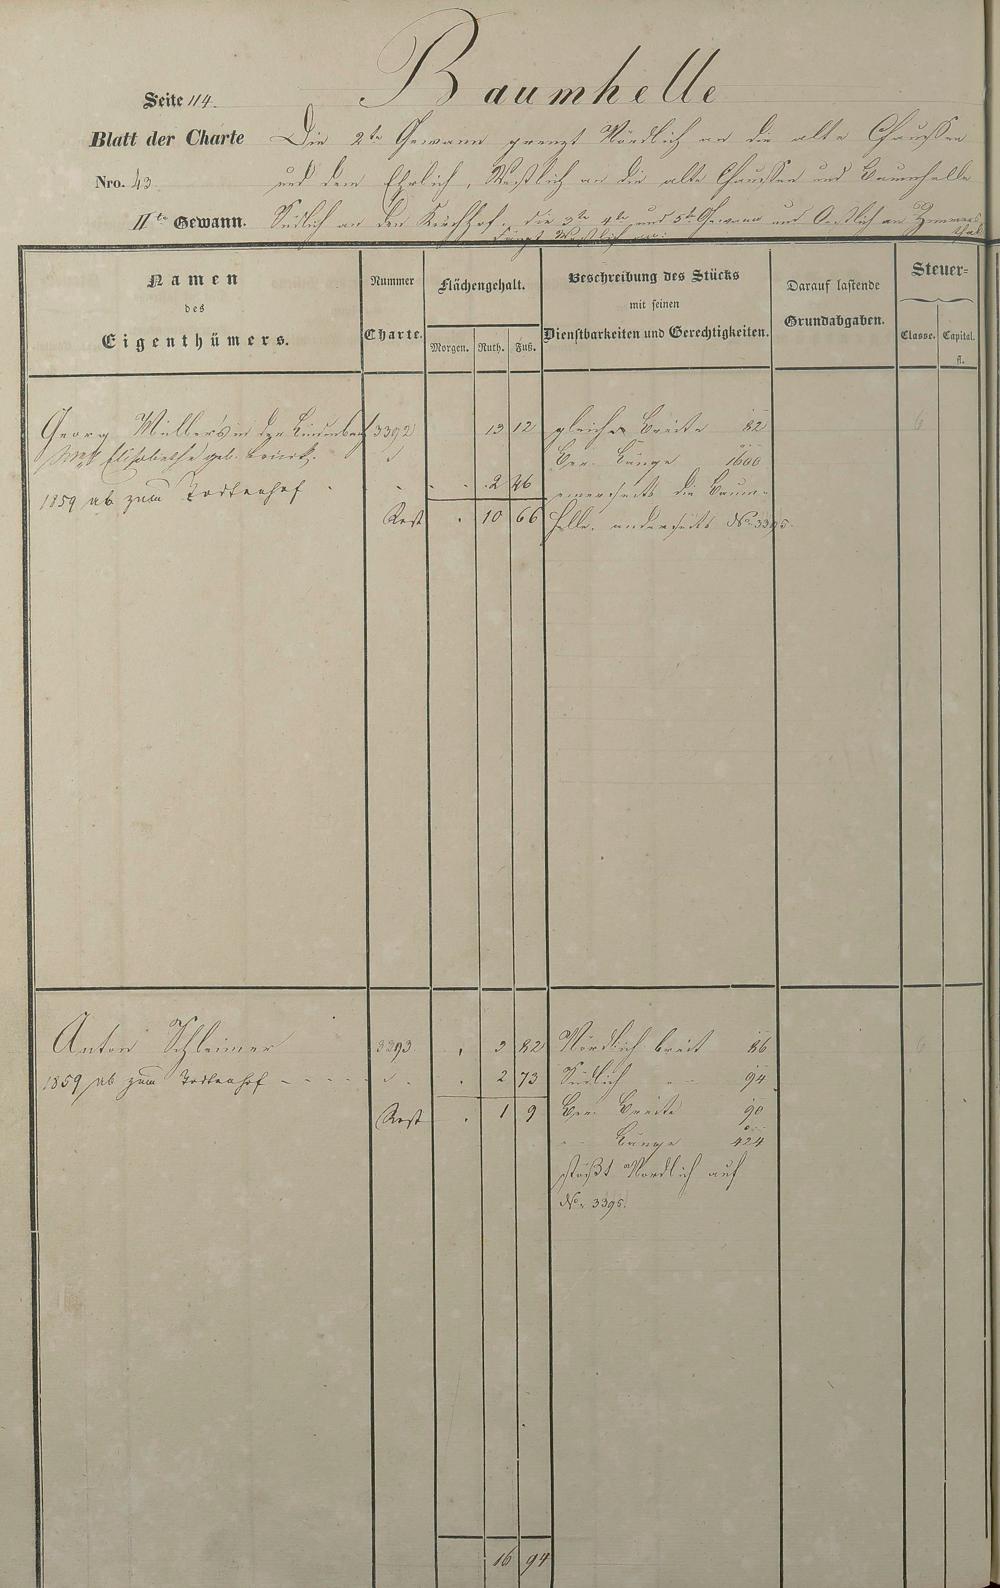 Baumhelle
Seite 114.
Blatt der Charte
Nro. 43.
IIte Gewann.
Die 2te Gewann grenzt Nördlich an die alte Chaussee
und dem Ehrlich, Westlich an die alte Chaussee und Baumhelle
Südlich an den Kirchhof, die 3te 4te und 5te Gewann und Oestlich an
fängt Westlich an:
Namen
des
Eigenthümers.
Nummer
Charte.
Flächengehalt.
Morgen. Ruth. Fuß.
Beschreibung des Stücks
mit seinen
Dienstbarkeiten und Gerechtigkeiten.
Darauf lastende
Grundabgaben.
Steuer-
Classe. Capital.
fl.
Georg in der 3392 13 12 gleiche Breite 82
Elisabetha geb. Ber. Länge 1600
1859 ab zum Todtenhof 2 46 einerseits die Baum-
Rest 10 66 helle, anderseits No. 3395.
6
Anton Schleimer 3393 3 82 Nördlich breit 86
1859 ab zum Todtenhof 2 73 Südlich 94
Rest 1 9 Ber. Breite 90
Länge 424
stößt Nördlich auf
No. 3395.
6
16 94